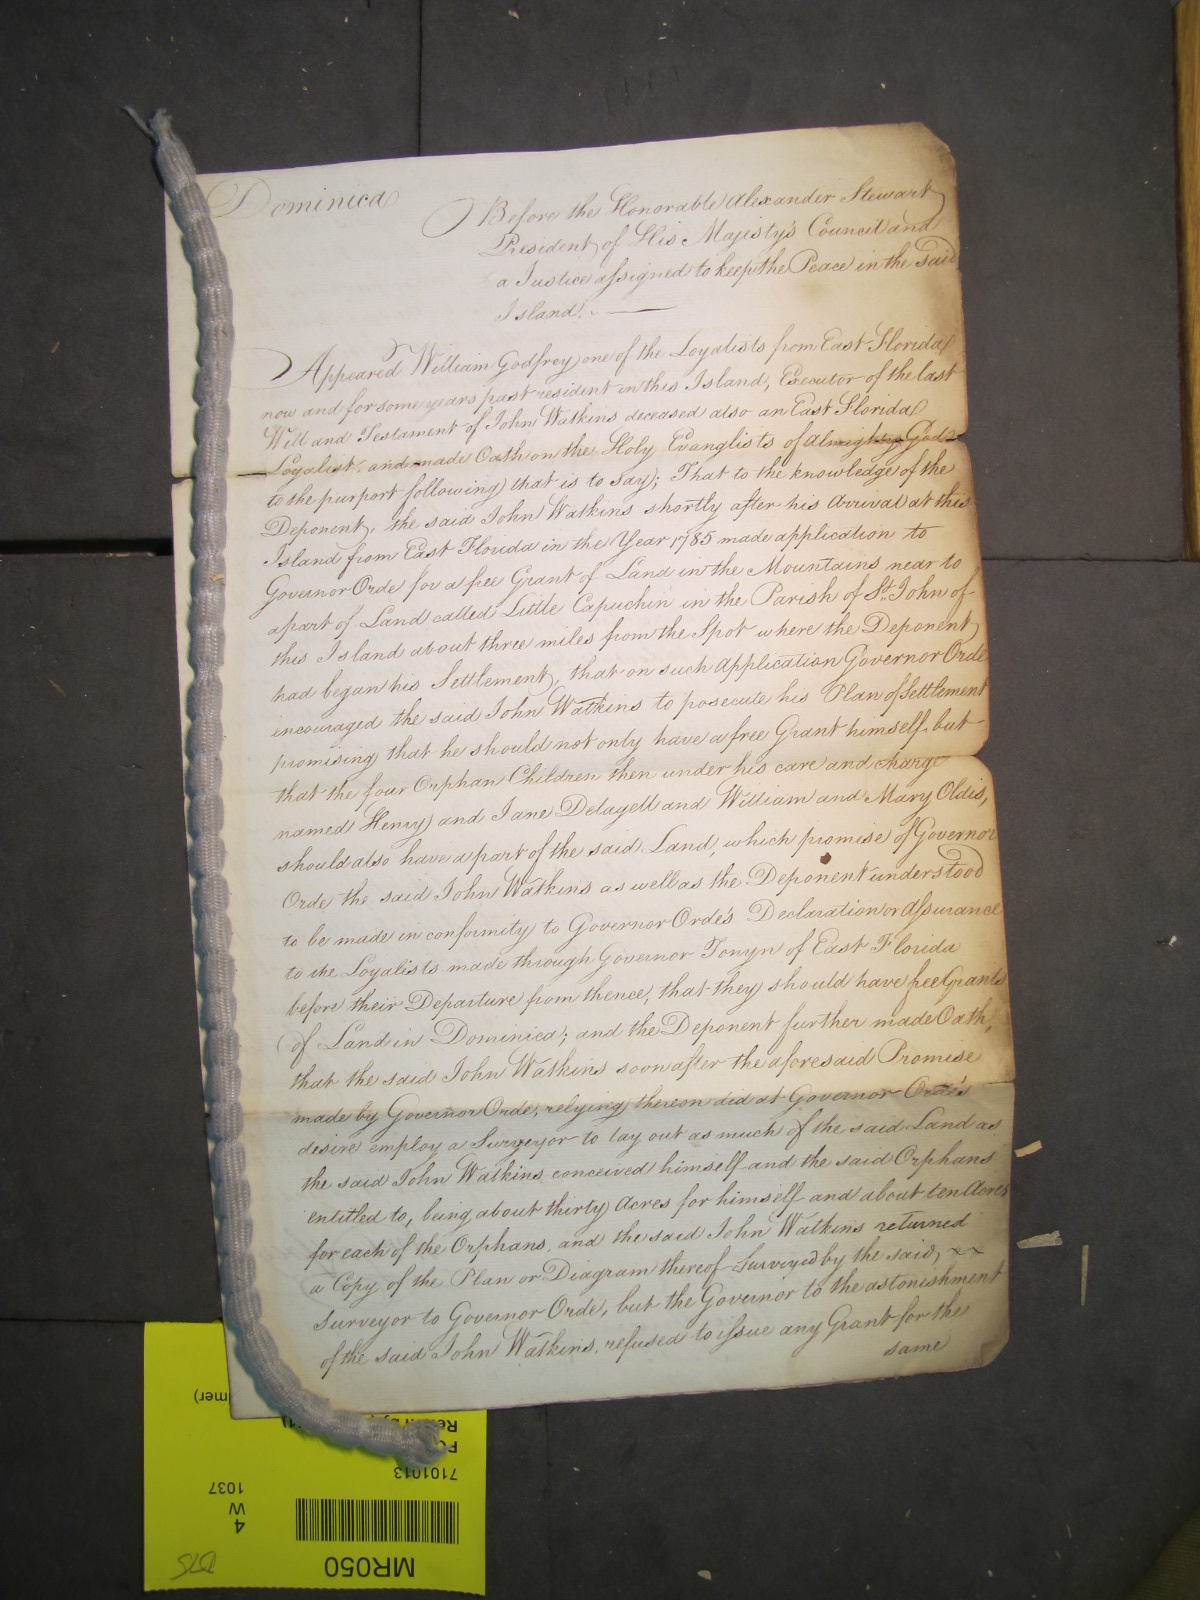 Dominica
Before the Honorable Alexander Stewart
President of His Majesty's Council and
a Justice assigned to keep the Peace in the said
Island.
Appeared William Godfrey one of the Loyalists from East Florida
now and for some years past resident in this Island, Executor of the last
Will and Testament of John Watkins deceased also an East Florida
Loyalist, and made Oath on the Holy Evanglists of Almighty God
to the purport following that is to say; That to the knowledge of the
Deponent, the said John Watkins shortly after his Arrival at this
Island from East Florida in the Year 1785 made application to
Governor Orde for a free Grant of Land in the Mountains near to
a part of Land called Little Capuchin in the Parish of St. John of
this Island about three miles from the Spot where the Deponent
had began his Settlement, that on such Application Governor Orde
encouraged the said John Watkins to posecute his Plan of Settlement
promising that he should not only have a free Grant himself, but
that the four Orphan Children then under his care and charge
named Henry and Jane Delagell and William and Mary Oldis,
should also have a part of the said Land, which promise of Governor
Orde the said John Watkins as well as the Deponent understood
to be made in conformity to Governor Orde's Declaration or Assurance
to the Loyalists made through Governor Tonyn of East Florida
before their Departure from thence, that they should have free Grants
of Land in Dominica; and the Deponent further made Oath,
that the said John Watkins soon after the aforesaid Promise
made by Governor Orde, relying thereon did at Governor Orde's
desire employ a Surveyor to lay out as much of the said Land as
the said John Watkins conceived himself and the said Orphans
entitled to, being about thirty Acres for himself and about ten Acres
for each of the Orphans, and the said John Watkins returned
a Copy of the Plan or Diagram thereof Surveyed by the said, x x
Surveyor to Governor Orde, but the Governor to the astonishment
of the said John Watkins, refused to issue any Grant for the
same
7101013
4
W
1037
MR050